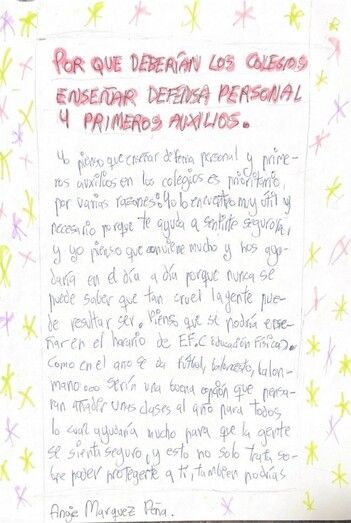 POR QUE DEBERÍAN LOS COLEGIOS
ENSEÑAR DEFENSA PERSONAL
Y PRIMEROS AUXILIOS.
Yo pienso que enseñar defensa personal y prime-
ros auxilios en los colegios es prioritario,
por varias razones: Yo lo encuentro muy útil y
necesario porque te ayuda a sentirte segurola,
y yo pienso que conviene mucho y nos ayu-
daría en el día a día porque nunca se
puede saber que tan cruel la gente pue-
de resultar ser. Pienso que se podría ense-
ñar en el horario de E.F.C Educación Física).
Como en el año se da fútbol, baloncesto, balon-
mano... sería una buena opción que pensa-
ran añadir unas clases al año para todos
lo cual ayudaría mucho para que la gente
se sienta seguro, y esto no solo trata so-
bre poder protegerte a ti, tambien podrías
Angie Marquez Peña.